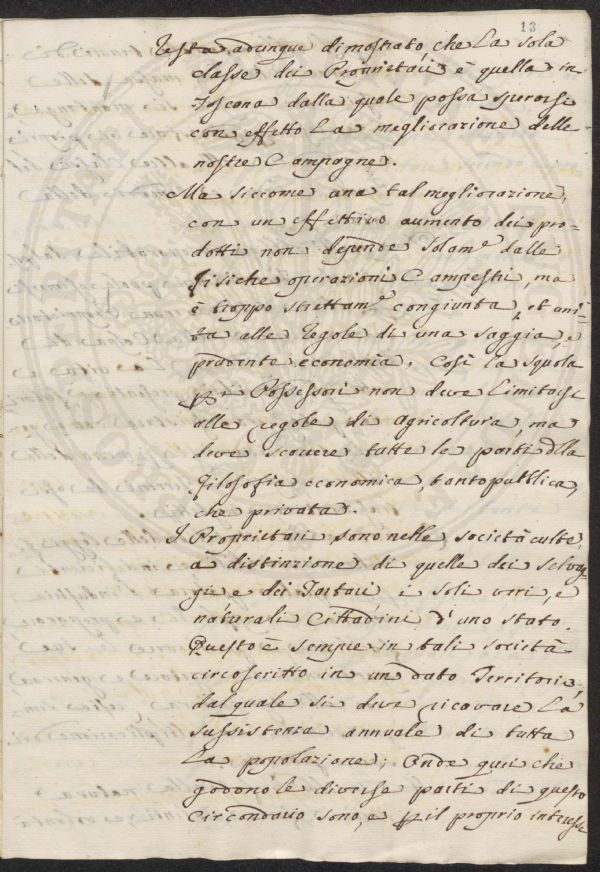 13
Resta adunque dimostrato, che La sola
classe dei Proprietarii è quella in
Toscana dalla quale possa sperarsi
con effetto La megliorazione delle
nostre Campagne.
Ma siccome una tal megliorazione,
con un effettivo aumento dei pro=
dotti non dipende solam.e dalle
fisiche operazioni Campestri, ma
è troppo strettam.e congiunta, et uni=
ta alle regole di una saggia, e
prudente economia. Così la squola
Possessori non deve Limitarsi
alle regole di agricoltura, ma
deve scorrere tutte le parti della
filosofia economica, tanto pubblica,
che privata.
I Proprietari sono nelle società culte,
a distinzione di quelle dei selvag=
gi e dei Tartari i soli veri, e
naturali Cittadini d'uno stato.
Questo è sempre in tali società
circoscritto in un dato Territorio,
dal quale si deve ricavare La
sussistenza annuale di tutta
La popolazione; Onde quei che
godono le diverse parti di questo
circondario sono, e il proprio interesse